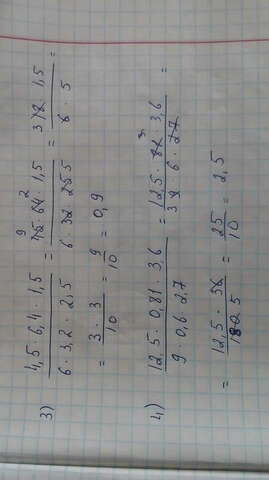 3) 4,5 · 6,4 · 1,5 / 6 · 3,2 · 2,5 = 9 45 · 64 2 · 1,5 / 6 · 32 · 25 5 = 3 18 · 1,5 / 6 · 5 =
= 3 · 3 / 10 = 9 / 10 = 0,9
4) 12,5 · 0,81 · 3,6 / 9 · 0,6 2,7 = 12,5 · 81 3 · 3,6 / 3 9 · 6 · 27 =
= 12,5 · 36 / 180 5 = 25 / 10 = 2,5